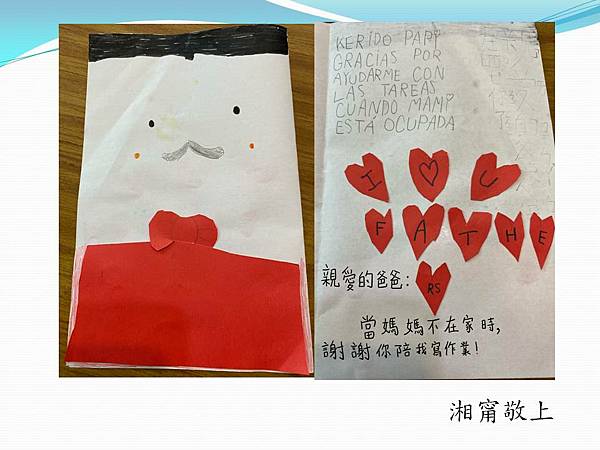 KERIDO PAPI
GRACIAS POR
AYUDARME CON
LAS TAREAS
CUANDO MAMI
ESTÁ OCUPADA
I ♡ U
FATHE
RS
親愛的爸爸:
當媽媽不在家時,
謝謝你陪我寫作業!
湘甯敬上